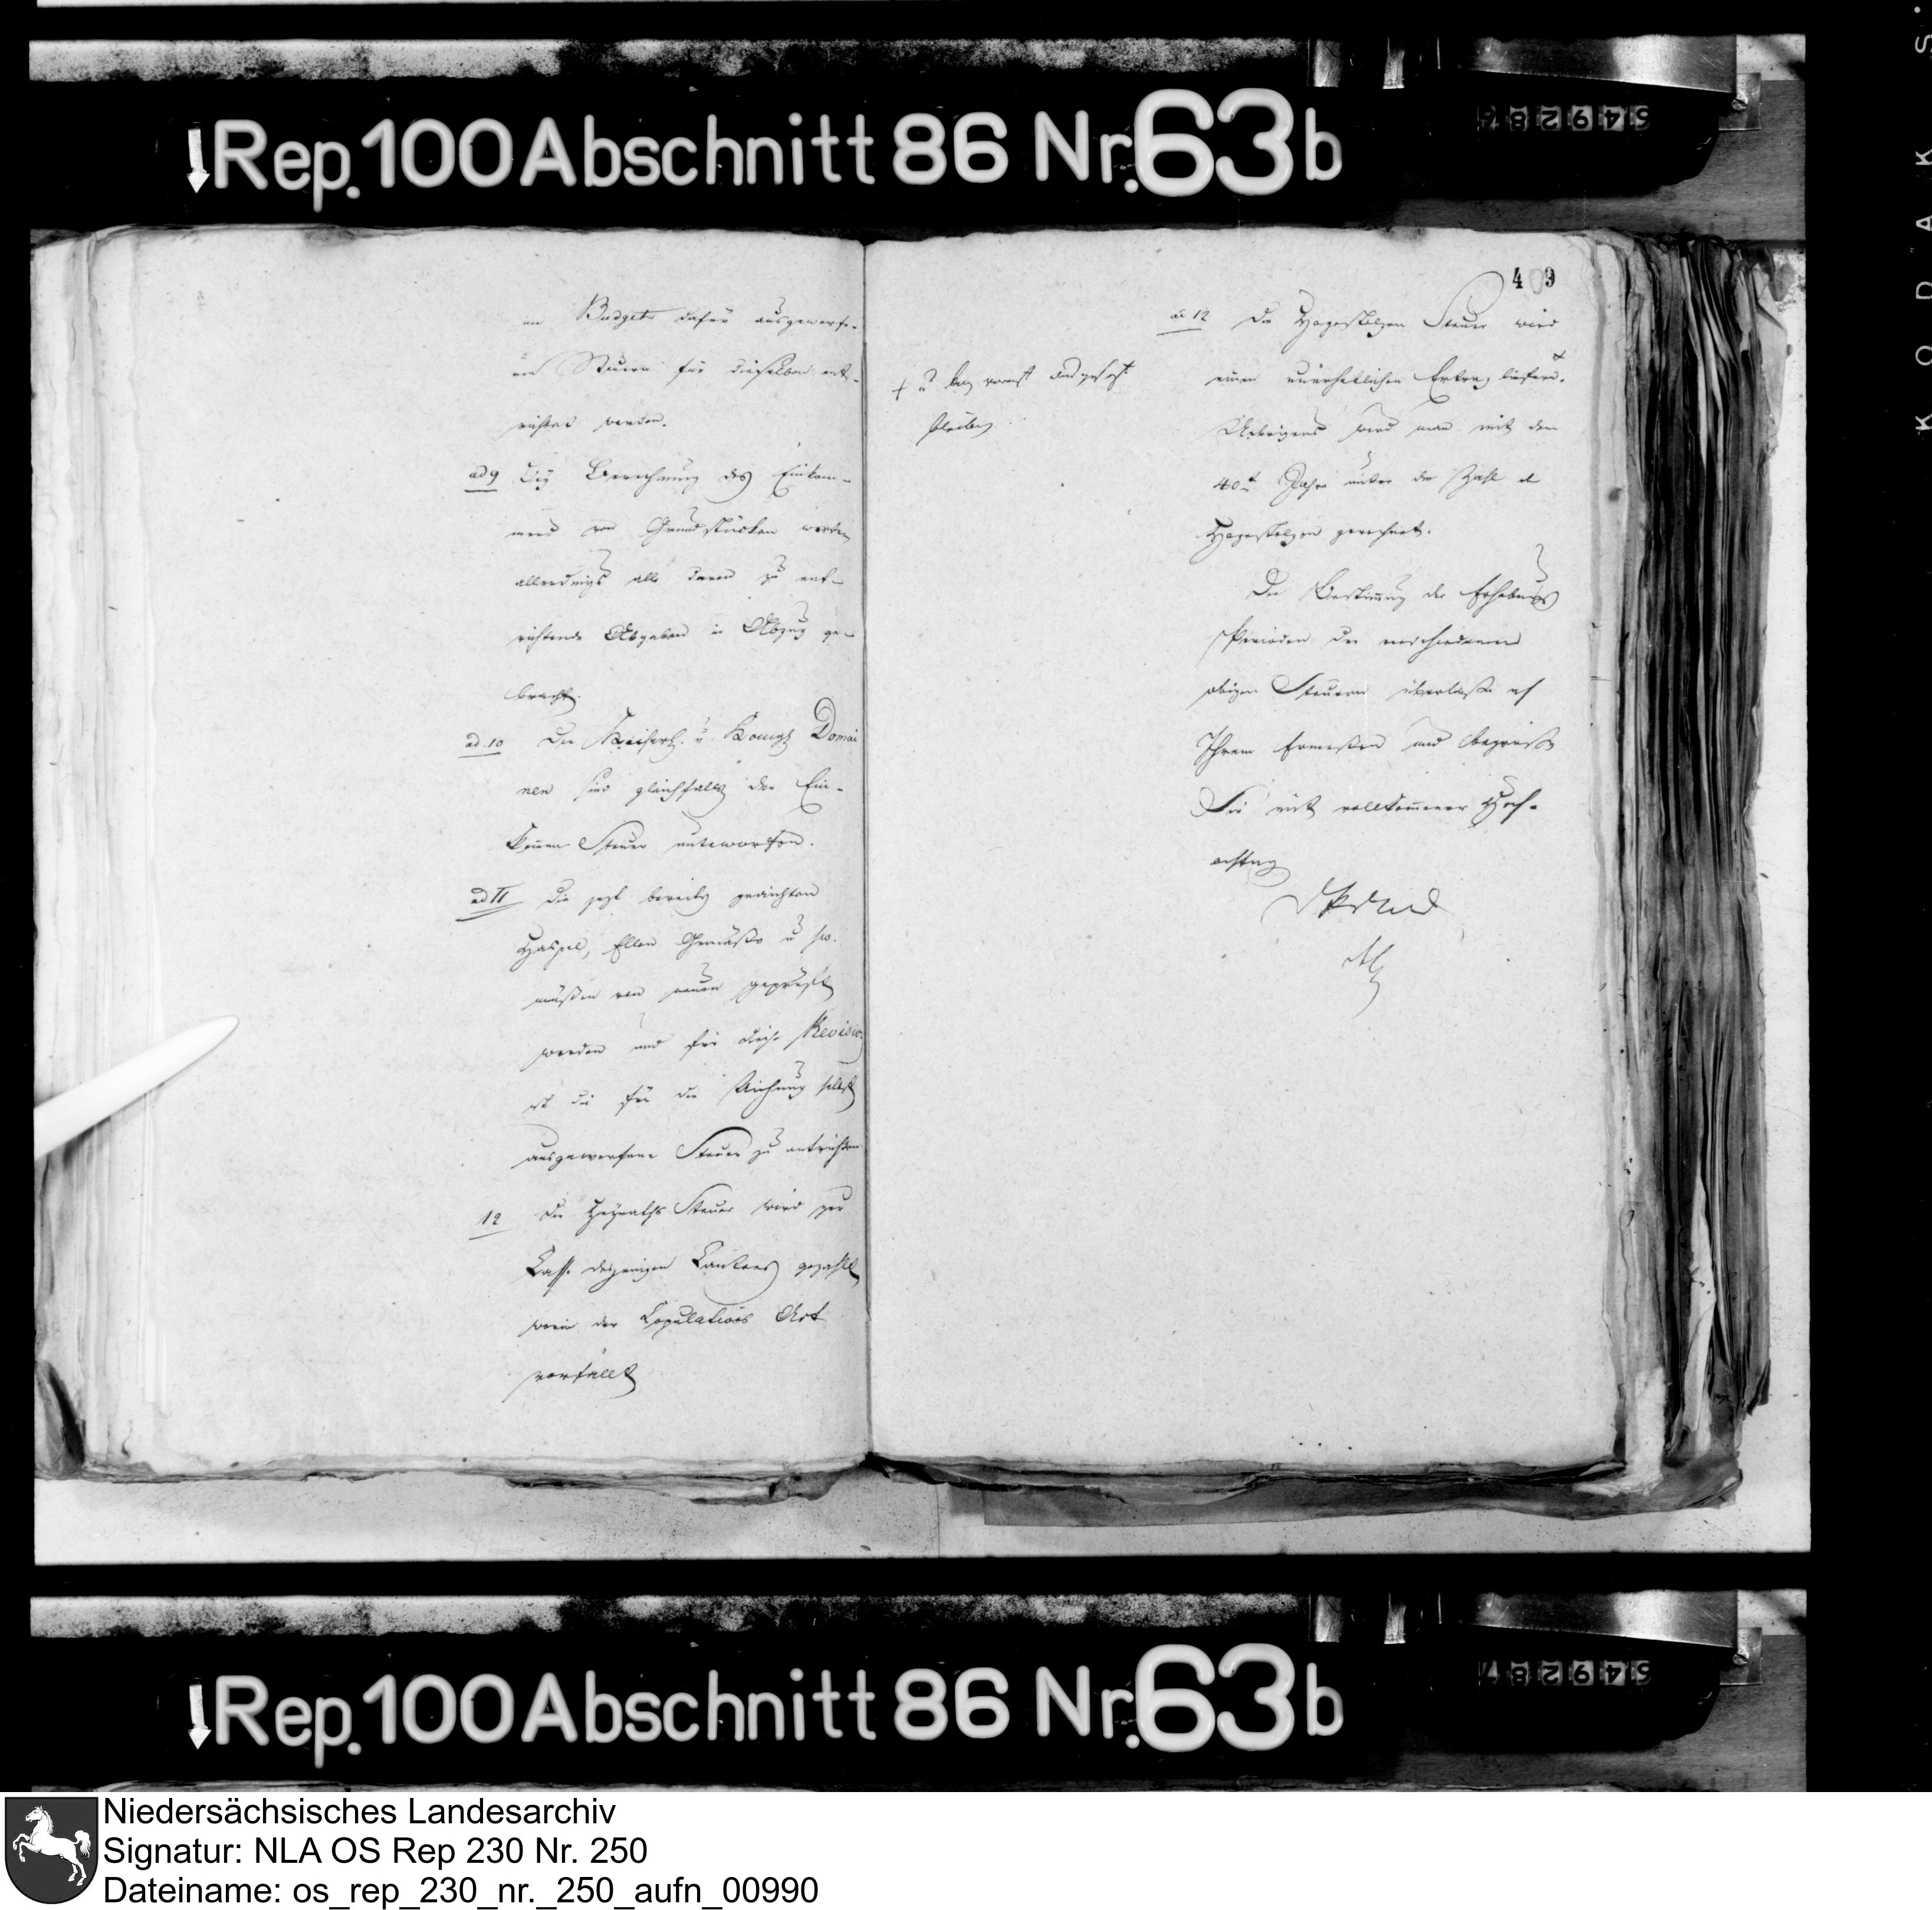 Rep. 100 Abschnitt 86 Nr. 63b
549286
KODAK S
im Budget dafür ausgeworfe-
nen Steuern für dieselben ent-
richtet werden.
ad 9 Bey Berechnung des Einkom-
mens von Grundstücken werden
allerdings alle davon zu ent-
richtende Abgaben in Abzug ge-
bracht.
ad. 10 Die Kaiserl. u. Königl Domai
nen sind gleichfalls der Ein-
kommen Steuer unterworfen.
ad 11 Die jetzt bereits geaichten
Haspel, Ellen Gemäße u
müßen von neuen geprüft
werden und für diese Revision
ist die für die Aichung selbst
ausgeworfene Steuer zu entrichten
12 Die Heyraths Steuer wird zur
Casse desjenigen Cantons gezahlt
worin der Copulations Act
vorfällt
409
ad 12 Die Hagestolzen Steuer wird
einen unerheblichen Ertrag liefern. +
+ u ausgesetzt
bleiben
Uebrigens wird man mit dem
40t Jahre unter die Zahl d
Hagestolzen gerechnet.
Die Bestimmung der Erhebungs
Perioden der verschiedenen
obigen Steuern überlaße ich
Ihrem Ermeßen und begrüße
Sie mit vollkommener Hoch-
achtung
Rep. 100 Abschnitt 86 Nr. 63b
549287
Niedersächsisches Landesarchiv
Signatur: NLA OS Rep 230 Nr. 250
Dateiname: os_rep_230_nr._250_aufn_00990